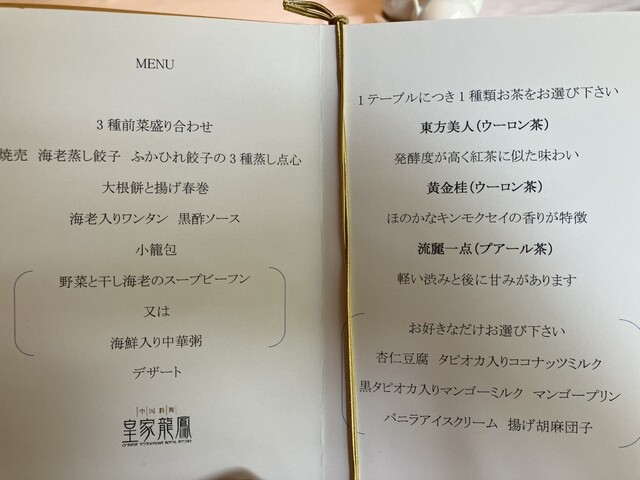 MENU
3種前菜盛り合わせ
焼売 海老蒸し餃子 ふかひれ餃子の3種蒸し点心
大根餅と揚げ春巻
海老入りワンタン 黒酢ソース
小籠包
野菜と干し海老のスープビーフン
又は
海鮮入り中華粥
デザート
中国料理
皇家龍鳳
1テーブルにつき1種類お茶をお選び下さい
東方美人(ウーロン茶)
発酵度が高く紅茶に似た味わい
黄金桂(ウーロン茶)
ほのかなキンモクセイの香りが特徴
流麗一点(プアール茶)
軽い渋みと後に甘みがあります
お好きなだけお選び下さい
杏仁豆腐 タピオカ入りココナッツミルク
黒タピオカ入りマンゴーミルク マンゴープリン
バニラアイスクリーム 揚げ胡麻団子